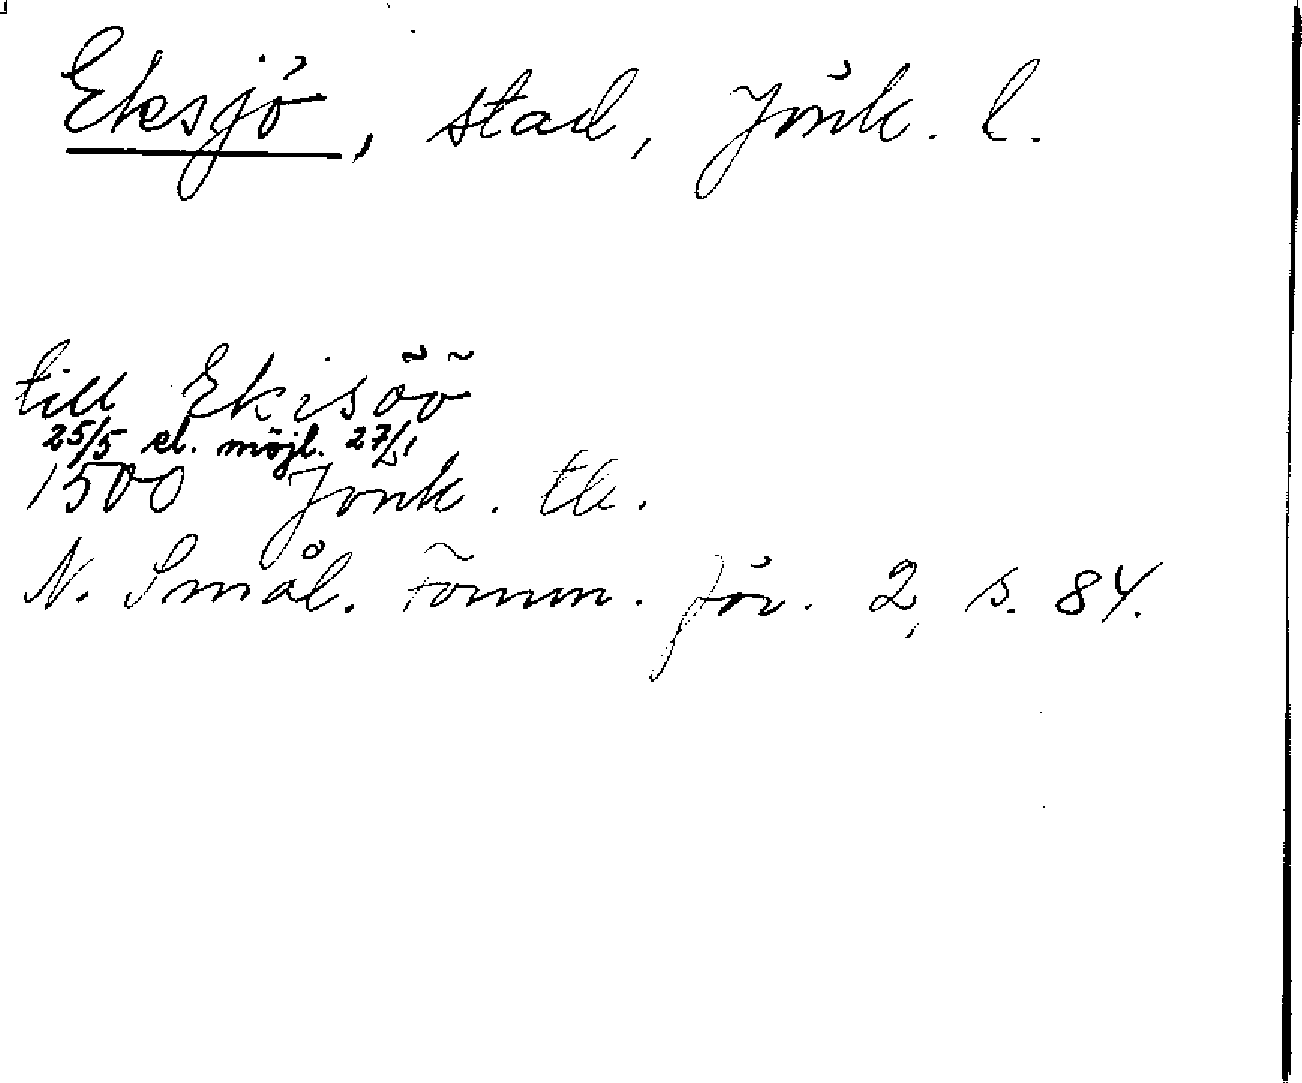 Eksjö, stad, Jönk. l.
till Ekisöö
25/5 el. möjl. 27/1
1500 Jönk. tb.
N. Smål. Fornm. för. 2, s. 84.